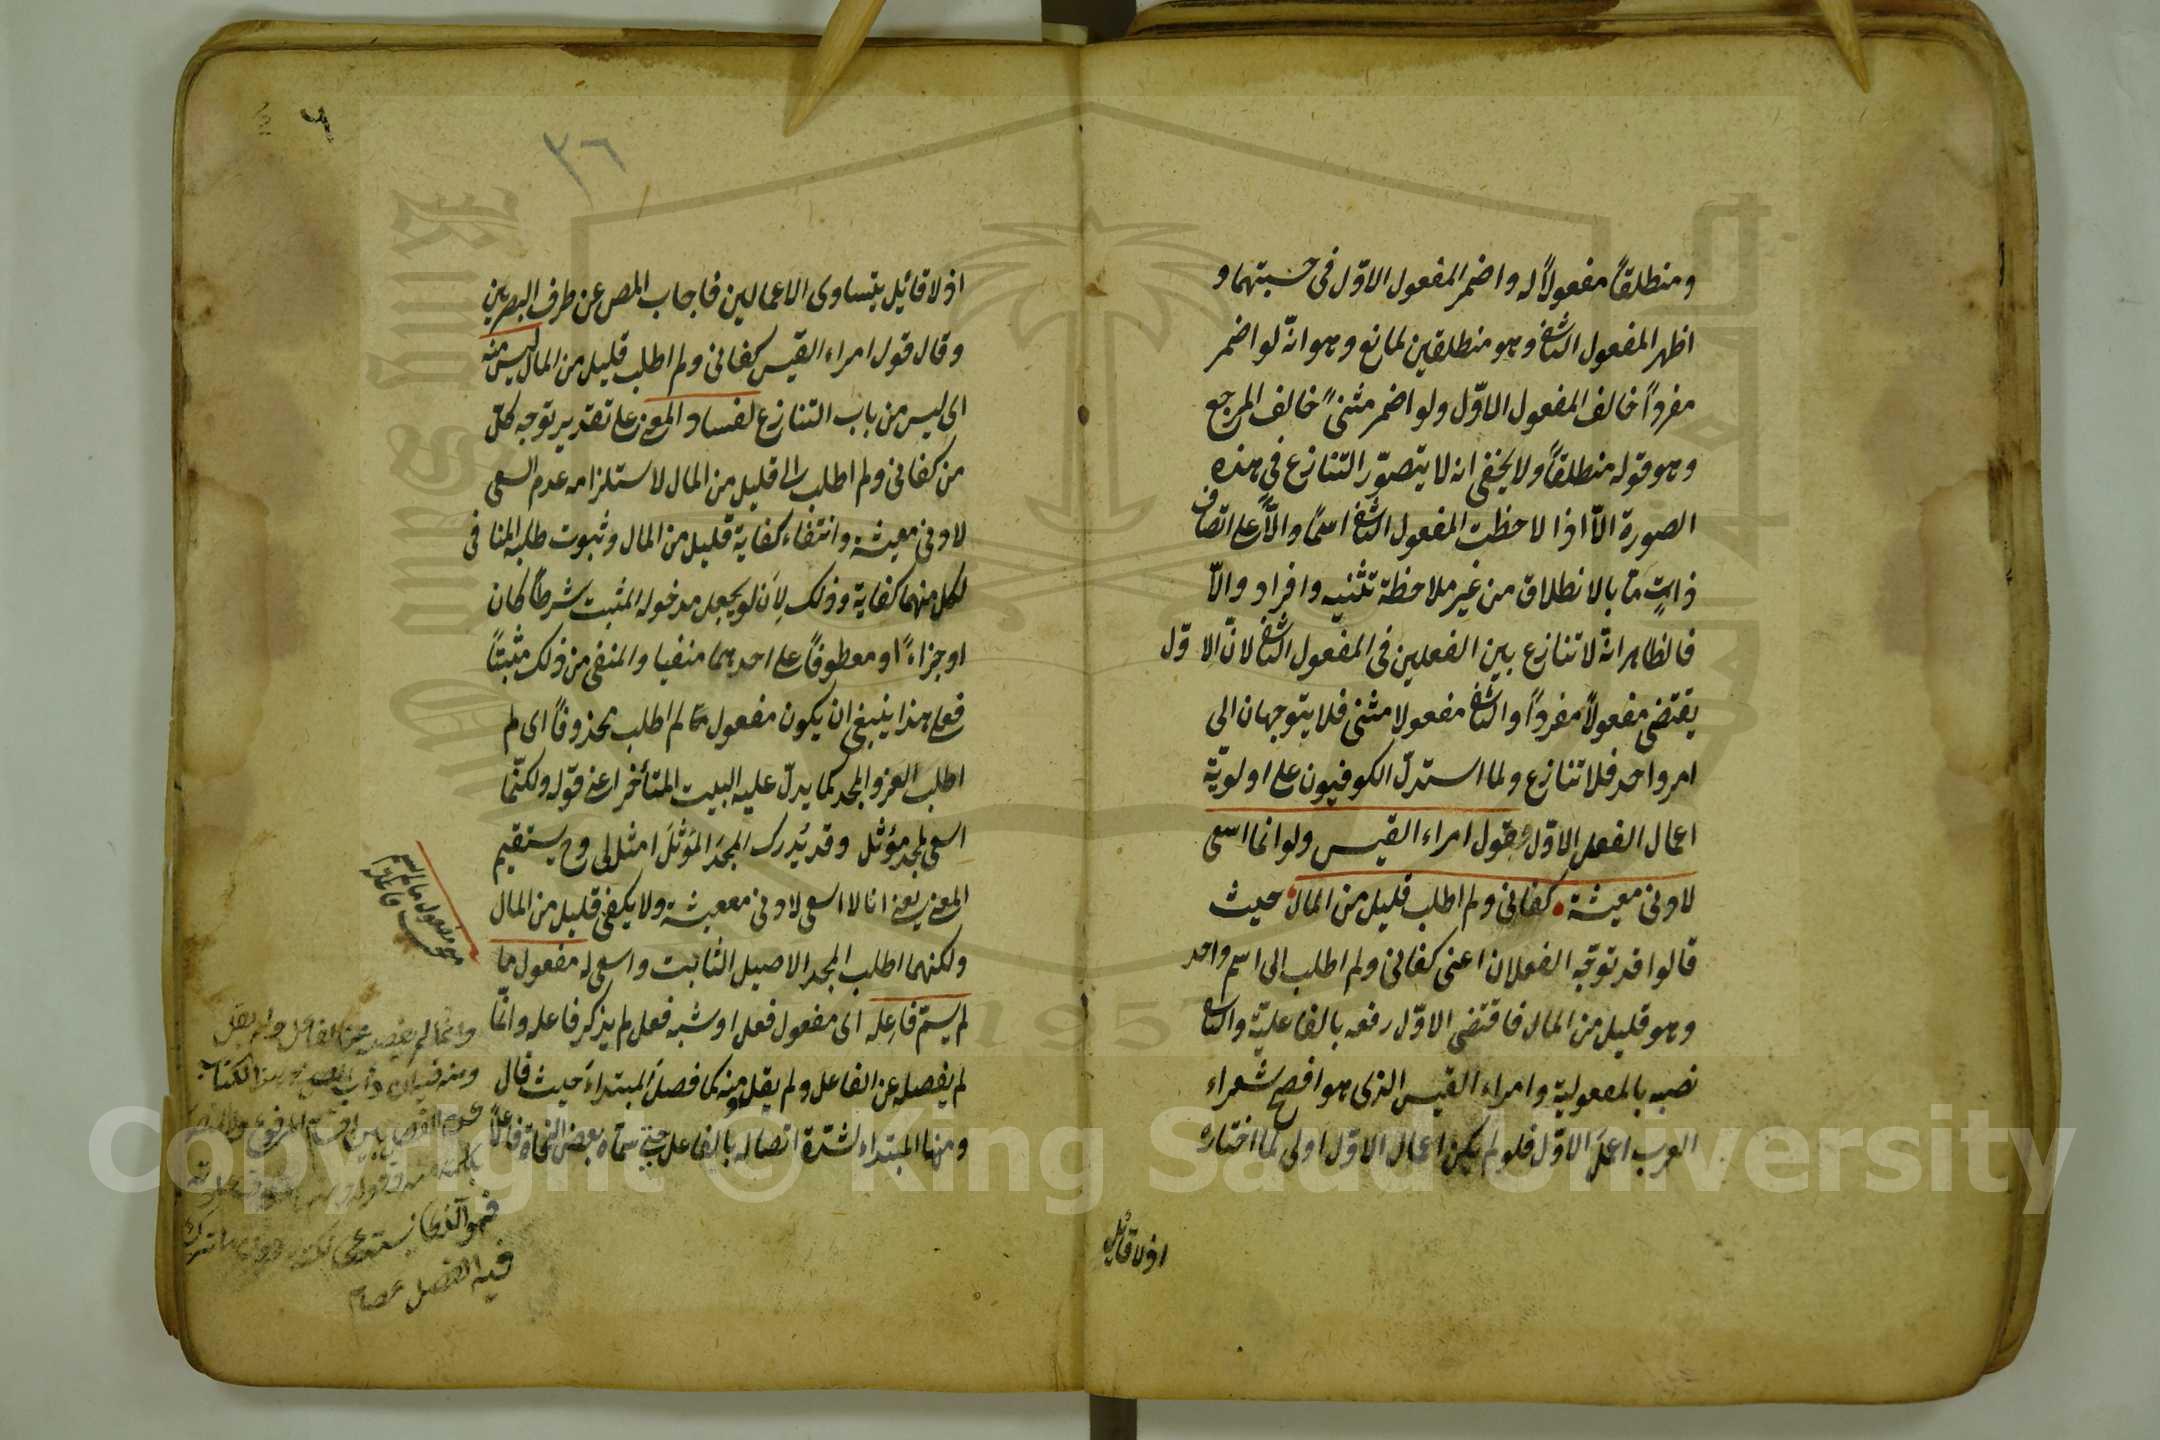 ومنطلقاً مفعولاً له واضمر المفعول الاوّل فى حسبتهما و
اظهر المفعول الثانى وهو منطلقين لمانع وهو انّه لو اضمر
مفرداً خالف المفعول الاوّل ولو اضمر مثنىً خالف المرجع
وهو قوله منطلقاً ولا يخفى انه لا يتصوّر التنازع فى هذه
الصورة الاّ اذا لاحظت المفعول الثانى اسماً دالاًّ على اتصاف
ذاتٍ مّا بالانطلاق من غير ملاحظة تثنيه وافراد والاّ
فالظاهر انه لا تنازع بين الفعلين فى المفعول الثانى لانّ الاوّل
يقتضى مفعولاً مفرداً والثانى مفعولا مثنى فلا يتوجهان الى
امر واحد فلا تنازع ولما استدلّ الكوفيون على اولويّة
اعمال الفعل الاوّل بقول امراء القيس ولو انما اسعى
لادنى معيشة كفانى ولم اطلب قليل من المال حيث
قالوا قد توجّه الفعلان اعنى كفانى ولم اطلب الى اسم واحد
وهو قليل من المال فاقتضى الاوّل رفعه بالفاعليّة والثانى
نصبه بالمفعولية وامراء القيس الذى هو افصح شعراء
العرب اعمل الاوّل فلو لم يكن اعمال الاوّل اولى لما اختاره
اذ لا قائل
٣٦
اذ لا قائل بتساوى الاعمالين فاجاب المص عن طرف البصريين
وقال قول امراء القيس كفانى ولم اطلب قليل من المال ليس منه
اى ليس من باب التنازع لفساد المعنى على تقدير توجه كلّ
من كفانى ولم اطلب الى قليل من المال لاستلزامه عدم السعى
لادنى معيشة وانتفاء كفاية قليل من المال وثبوت طلبه المنافى
لكل منهما كفاية وذلك لِاَن لو يجعل مدخوله المثبت شرطاً كان
او جزاءً او معطوفاً على احدهما منفيا والمنفى من ذلك مثبتاً
فعلى هذا ينبغى ان يكون مفعول لم اطلب محذوفاً اى لم
اطلب العز والمجد كما يدلّ عليه البيت المتأخر اعنى قوله ولكنّما
اسعى لمجد مؤثل وقد يُدرك المجدَ المؤثلَ امثالى وح يستقيم
المعنى يعنى انا لا اسعى لادنى معيشة ولا يكفى قليل من المال
ولكنهما اطلب المجد الاصيل الثابت واسعى له مفعول ما
لم يسمّ فاعله اى مفعول فعل او شبه فعل لم يذكر فاعله وانّما
لم يفصله عن الفاعل ولم يقل ومنه كما فصل المبتداء حيث قال
ومنها المبتداء لشدّة اتصاله بالفاعل حتى سمّاه بعض النحاة فاعلاً
وانما لم يفصله عن الفاعل
فيه الفصل عصام
Copyright © King Saud University
1957